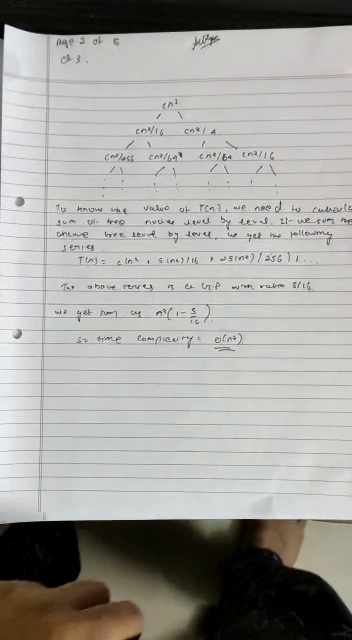 Page 2 of 5
Q3.
cn²
cn²/16 cn²/4
cn²/256 cn²/64 cn²/64 cn²/16
To know the value of T(n), we need to calculate
sum of tree nodes level by level. If we sum the
above tree level by level, we get the following
series
T(n) = c(n² + 5(n²)/16 + 25(n²)/256) + ...
The above series is a G.P with ratio 5/16.
we get sum as n²(1 - 5/16)
so time complexity = O(n²)